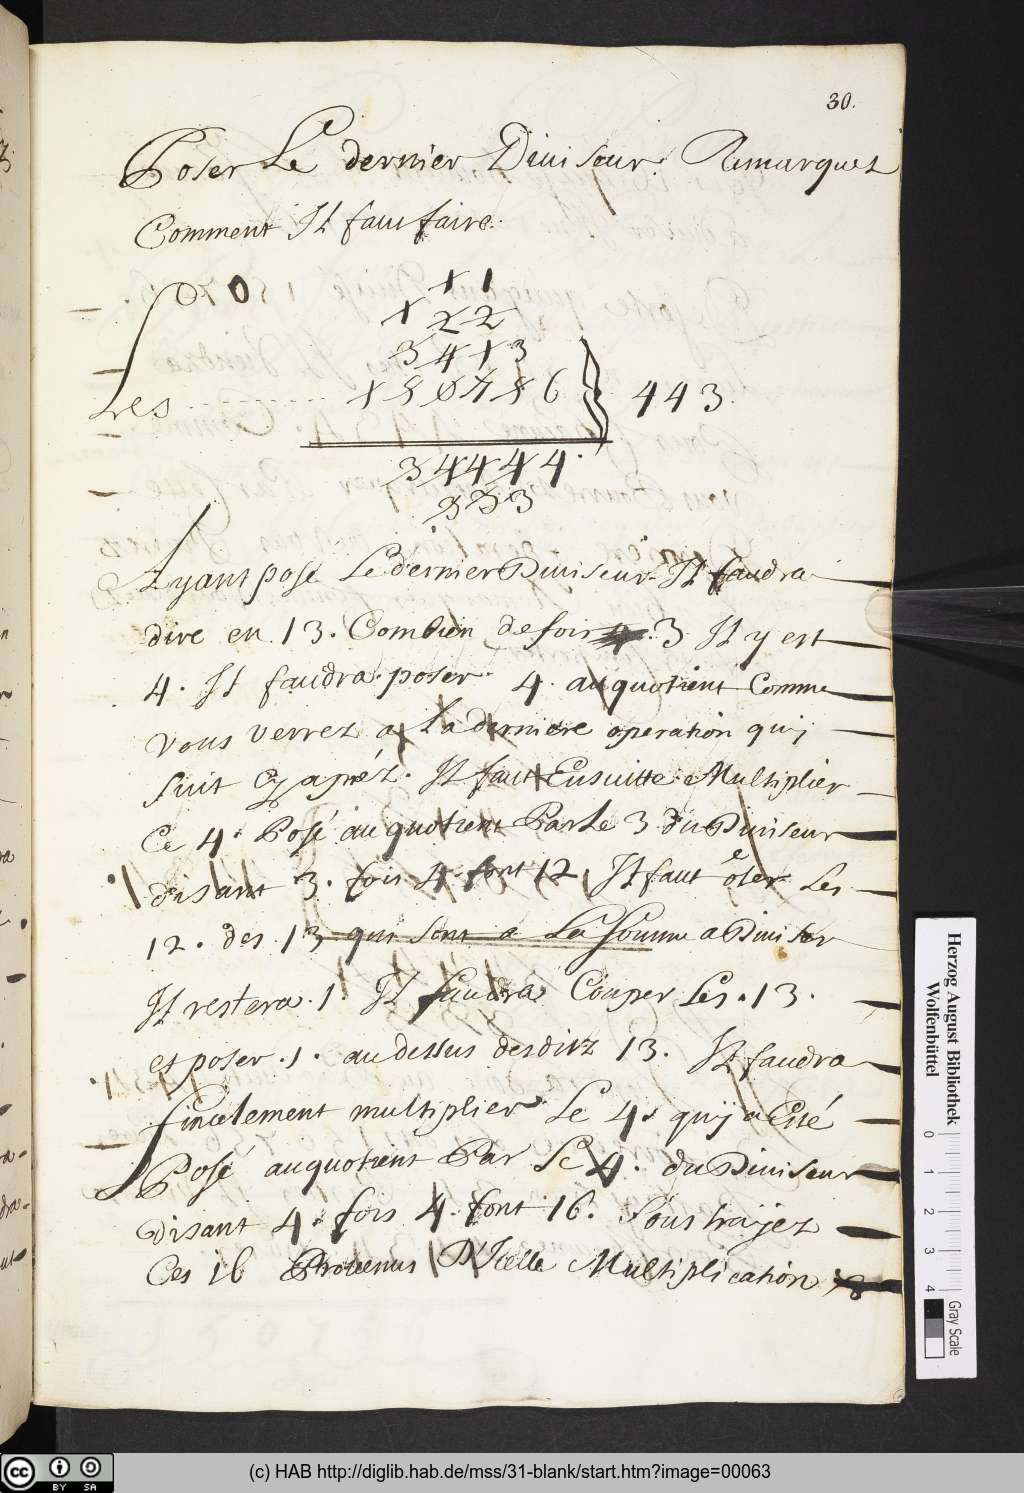 30.
Poser Le dernier Diuiseur. Remarquez
Comment Il faut faire.
0
x 1
x 2 2
3 4 x 3
x 8 0 7 8 6 } 4 4 3.
3 4 4 4 4.
3 3 3
Ayant posé Le dernier Diuiseur. Il faudra
dire en 13. Combien de fois 3 Il y est
4. Il faudra poser 4. au quotient Comme
Vous verrez a La derniere operation quj
suit Cy aprés. Il faut Ensuitte Multiplier
Ce 4. Posé au quotient Par Le 3 du Diuiseur
disant 3. fois 4. font 12, Il faut oter Les
12. des 13 qui sont a La Somme a Diuiser
Il restera. 1. Il faudra Couper Les. 13.
et poser. 1. au dessus desditz 13. Il faudra
finalement multiplier Le 4. quj a Esté
Posé au quotient Par Le 4. du Diuiseur
Disant 4. fois 4. font 16. Soustrajez
Ces 16 Prouenus D'Icelle Multiplication
Herzog August Bibliothek
Wolfenbüttel
0 1 2 3 4
Gray Scale
cc BY SA
(c) HAB http://diglib.hab.de/mss/31-blank/start.htm?image=00063